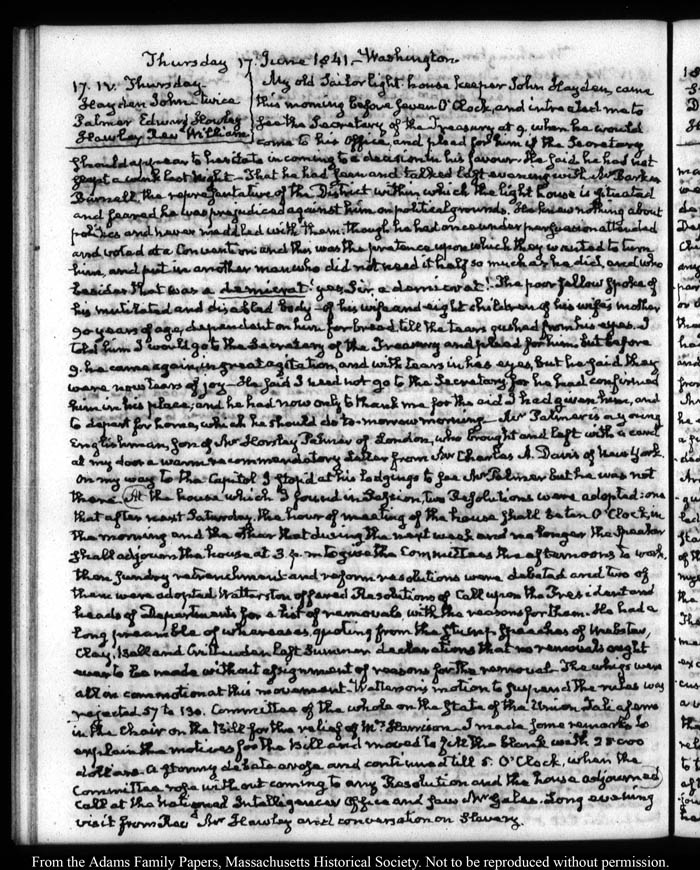 Thursday 17. June 1841. Washington.
17. IV. Thursday
Hayden John twice
Palmer Edward Howley
Hawley Revd William
My old Tailor light house keeper John Hayden, came
this morning before seven O'Clock, and intreated me to
see the Secretary of the Treasury at 9. when he would
come to his Office, and plead for him if the Secretary
should appear to hesitate in coming to a decision in his favour. He said he had not
slept a wink last Night— That he had seen and talked last evening with Mr Barker
Burnell, the representative of the District within which the light house is situated
and feared he was prejudiced against him on political grounds. He knew nothing about
politics and never meddled with them; though he had once under persuasion attended
and voted at a Convention and this was the pretence upon which they wanted to turn
him, and put in another man who did not need it half so much as he did, and who
besides that was a democrat! yes, Sir a democrat! The poor fellow spoke of
his mutilated and disabled body— of his wife and eight children of his wife's mother
90 years of age, dependent on him for bread till the tears gushed from his eyes. I
told him I would go to the Secretary of the Treasury and plead for him but before
9. he came again, in great agitation, and with tears in his eyes, but he said they
were now tears of joy— He said I need not go to the Secretary, for he had confirmed
him in his place; and he had now only to thank me for the aid I had given him, and
to depart for home, which he should do to-morrow morning— Mr Palmer is a young
Englishman, son of Mr Horsley Palmer of London, who brought and left with a card
at my door a warm recommendatory Letter from Mr Charles A. Davis of New York.
On my way to the Capitol I stop'd at his lodgings to see Mr Palmer but he was not
there. At the house which I found in Session, two Resolutions were adopted: one
that after next Saturday, the hour of meeting of the house shall be ten O'Clock, in
the morning and the other that during the next week and no longer the Speaker
shall adjourn the house at 3. p.m to give the Committees the afternoons to work.
then sundry retrenchment and reform resolutions were debated and two of
them were adopted. Watterson offered Resolutions of Call upon the President and
heads of Departments for a list of removals, with the reasons for them. He had a
long preamble of whereases, quoting from the stump speeches of Webster,
Clay, Bell and Crittenden last Summer declarations that no removals ought
ever to be made without assignment of reasons for the removal— The whigs were
all in commotion at this movement. Watterson's motion to suspend the rules was
rejected 57 to 130. Committee of the whole on the state of the Union. Taliaferro
in the Chair on the Bill for the relief of Mrs Harrison— I made some remarks to
explain the motives for the Bill and moved to fill the blank with 25000
dollars. A stormy debate arose and continued till 5. O'Clock, when the
Committee rose without coming to any Resolution and the house adjourned
Call at the National Intelligencer Office and saw Mr Gales. Long evening
visit from Revd Mr Hawley and conversation on Slavery.
From the Adams Family Papers, Massachusetts Historical Society. Not to be reproduced without permission.